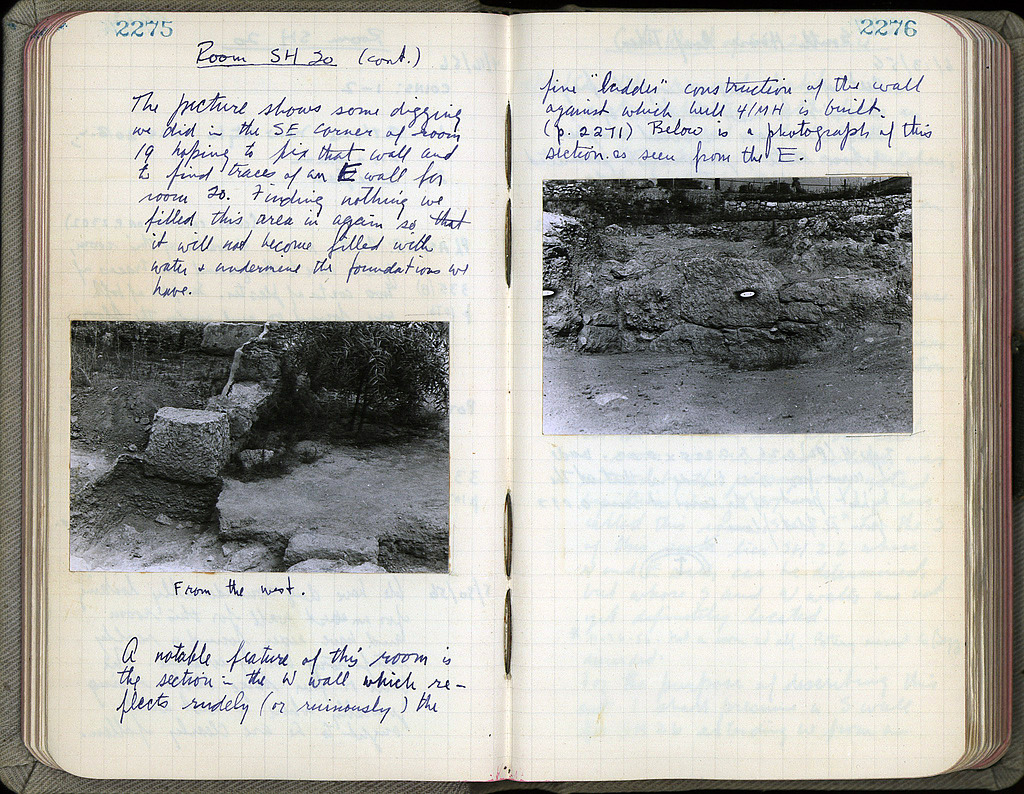 2275
Room SH 20 (cont.)
The picture shows some digging
we did in the SE corner of room
19 hoping to fix that wall and
to find traces of an E wall for
room 20. Finding nothing we
filled this area in again so that
it will not become filled with
water & undermine the foundations we
have.
From the west.
A notable feature of this room is
the section in the W wall which re-
flects rudely (or ruinously) the
2276
fine "ladder" construction of the wall
against which well 4/MH is built.
(p. 2271) Below is a photograph of this
section as seen from the E.